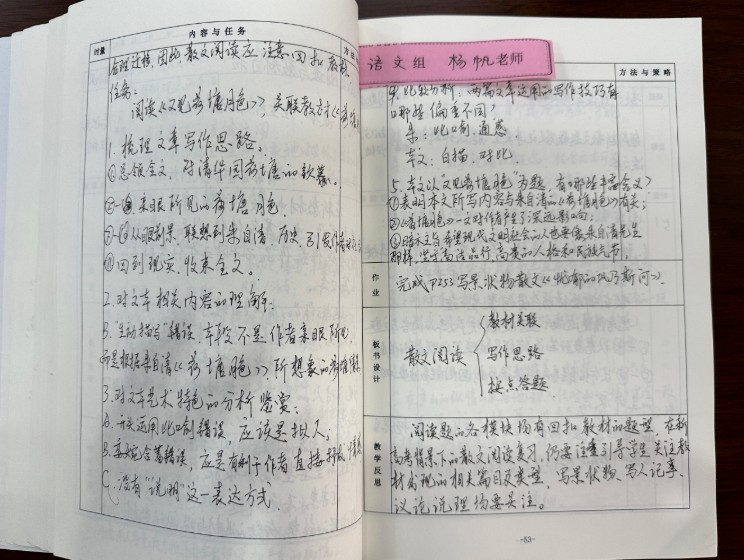 时量
内容与任务
合理迁移，因此散文阅读应注意回扣教材。
任务：
阅读《又见荷塘月色》，关联教材《荷塘
1. 梳理文章写作思路。
①总领全文，对清华园荷塘的
亲眼所见的荷塘月色
从眼前景，联想到朱自清、历史，引发作者
⑪回到现实，收束全文。
2. 对文章相关内容的理解：
B."生动描写"错误，本段不是作者亲眼所见，
而是根据朱自清《荷塘月色》，所想象的荷塘
3. 对文章艺术特色的分析鉴赏：
A. 开头运用比喻错误，应该是拟人；
B. 委婉含蓄错误，应是有利于作者直接抒发
C. 没有"说明"这一表达方式.
语文组 杨帆老师
方法与策略
4. 比较分析，两篇文章运用的写作技巧有
哪些偏重不同？
朱：比喻、通感
本文：白描、对比
5. 本文以"又见荷塘月色"为题，有哪些丰富含义？
①表明本文所写内容与朱自清的《荷塘月色》有关；
②《荷塘月色》一文对作者产生了深远影响；
③暗示主旨希望现代文明社会的人也要像朱自清先生
那样，坚守高洁品行，高贵的人格和民族气节。
作业
完成P253写景状物散文《忧郁的瓦乃斯河》.
板书设计
散文阅读
教材关联
写作思路
按点答题.
教学反思
阅读题的各模块均有回扣教材的题型，在新
高考背景下的散文阅读复习，仍要注重引导学生关注教
材出现的相关篇目及类型，写景状物、写人记事、
议论说理均要关注。
-63-